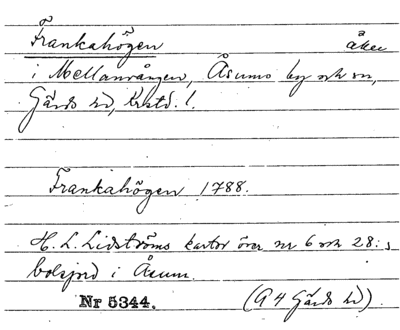 Frankahögen åker
i Mellanvången, Åsums by och sn,
Gärds hd, Krstd. l.
Frankahögen 1788.
H. L. Lidströms kartor över nr 6 och 28:s
bolsjord i Åsum.
Nr 5344. (A 4 Gärds hd).